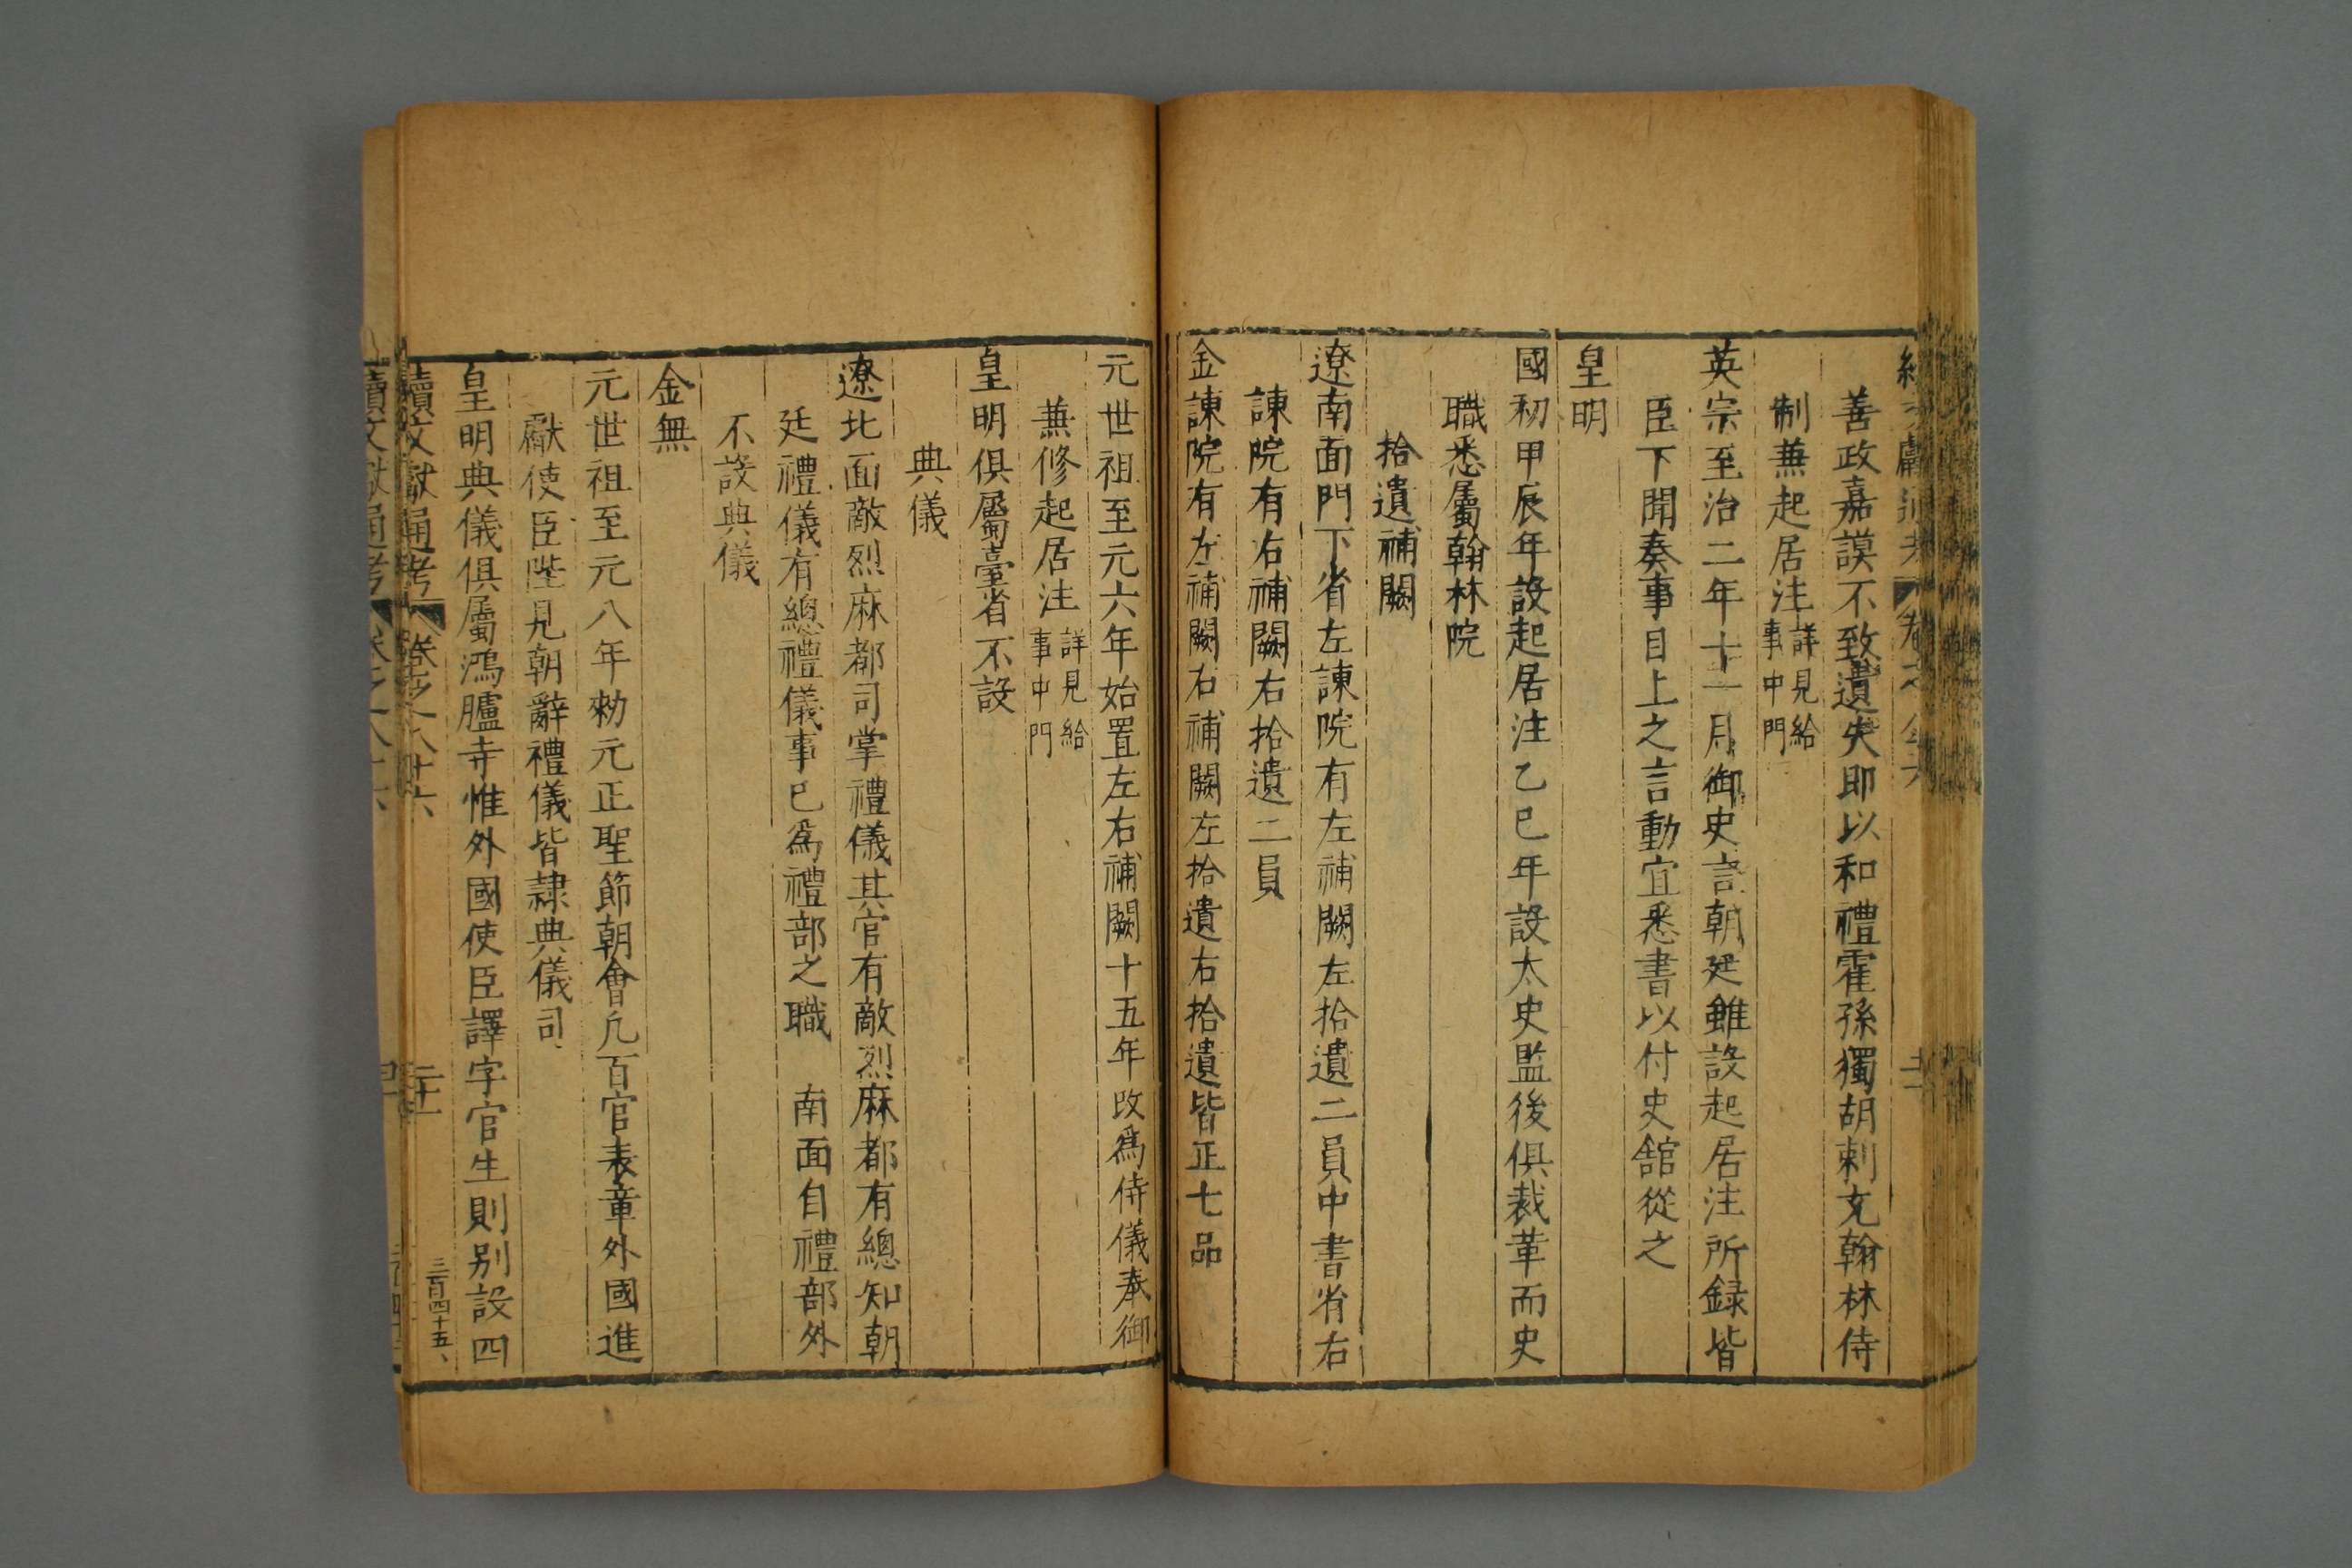 善政嘉謨不致遺失即以和禮霍孫獨胡剌充翰林侍
制蕪起居注詳見給事中門
英宗至治二年十一月御史言朝廷雖設起居注所録皆
臣下聞奏事目上之言動宜悉書以付史舘從之
皇明
國初甲辰年設起居注乙巳年設太史監後俱裁革而史
職悉屬翰林院
拾遺補闕
遼南面門下省左諫院有左補闕左拾遺二員中書省右
諫院有右補闕右拾遺二員
金諫院有左補闕右補闕左拾遺右拾遺皆正七品
元世祖至元六年始置左右補闕十五年改爲侍儀奉御
蕪修起居注詳見給事中門
皇明俱屬臺省不設
典儀
遼北面敵烈麻都司掌禮儀其官有敵烈麻都有總知朝
廷禮儀有總禮儀事已爲禮部之職　南面自禮部外
不設典儀
金無
元世祖至元八年勑元正聖節朝會凡百官表章外國進
獻使臣陛見朝辭禮儀皆隷典儀司
皇明典儀俱屬鴻臚寺惟外國使臣譯字官生則别設四
續文獻通考 卷之八十六 二十一 三百四十五